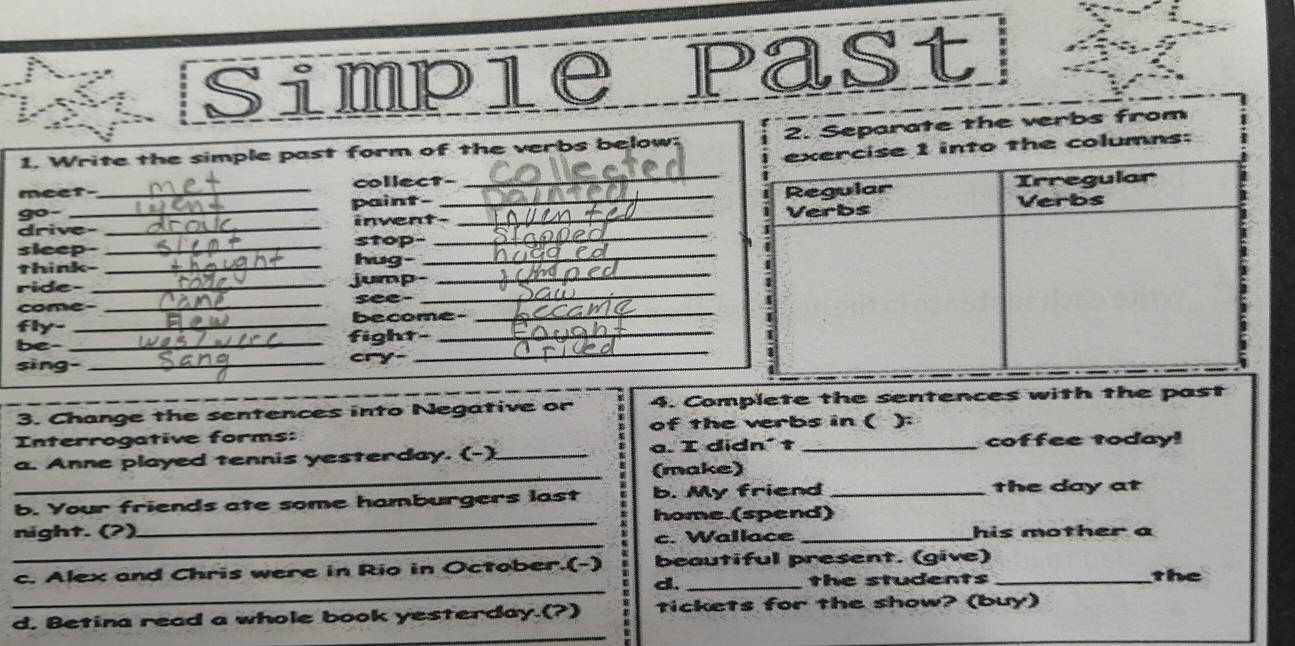 Simple Past
1. Write the simple past form of the verbs below:
meet- met
go- went
drive- drove
sleep- slept
think- thought
ride- rode
come- came
fly- flew
be- was/were
sing- sang
collect- collected
paint- painted
invent- invented
stop- stopped
hug- hugged
jump- jumped
see- saw
become- became
fight- fought
cry- cried
2. Separate the verbs from
exercise 1 into the columns:
Regular
Verbs
Irregular
Verbs
3. Change the sentences into Negative or
Interrogative forms:
a. Anne played tennis yesterday. (-)
b. Your friends ate some hamburgers last
night. (?)
c. Alex and Chris were in Rio in October.(-)
d. Betina read a whole book yesterday.(?)
4. Complete the sentences with the past
of the verbs in ( ):
a. I didn't ____ coffee today!
(make)
b. My friend ____ the day at
home.(spend)
c. Wallace ____ his mother a
beautiful present. (give)
d. ____ the students ____ the
tickets for the show? (buy)